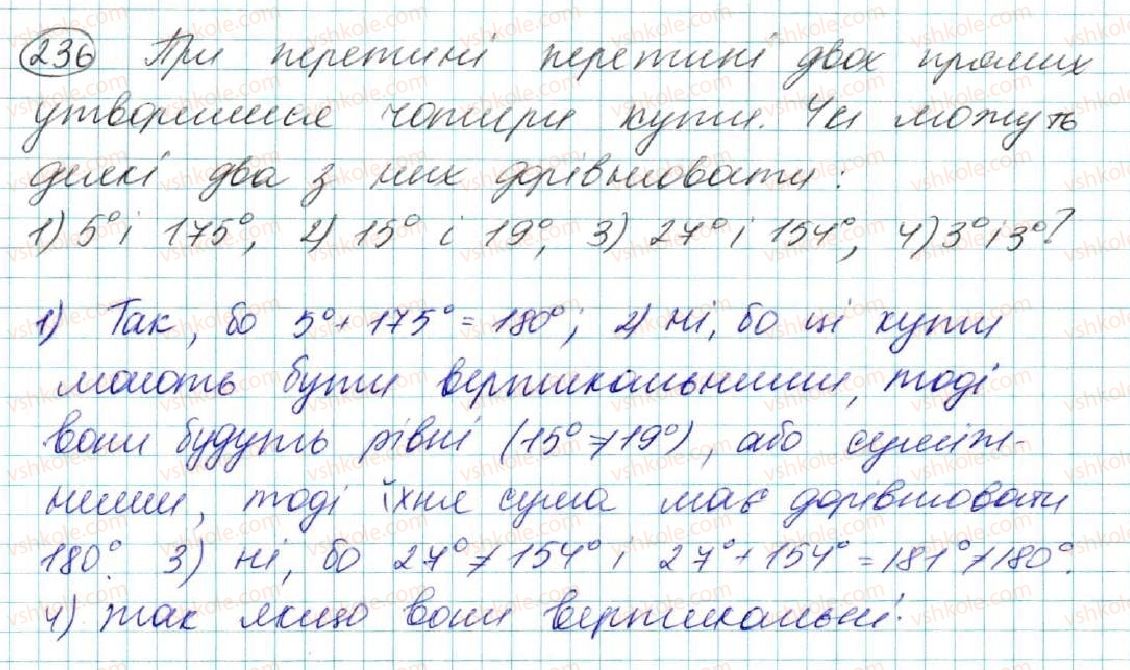 236 При перетині перетині двох прямих
утворилися чотири кути. Чи можуть
деякі два з них дорівнювати:
1) 5° і 175°, 2) 15° і 19°, 3) 27° і 154°, 4) 3° і 3°?
1) Так, бо 5° + 175° = 180°; 2) ні, бо ці кути
мають бути вертикальними, тоді
вони будуть рівні (15° ≠ 19°), або суміж-
ними, тоді їхня сума має дорівнювати
180°. 3) ні, бо 27° ≠ 154° і 27° + 154° = 181° ≠ 180°.
4) так якщо вони вертикальні.